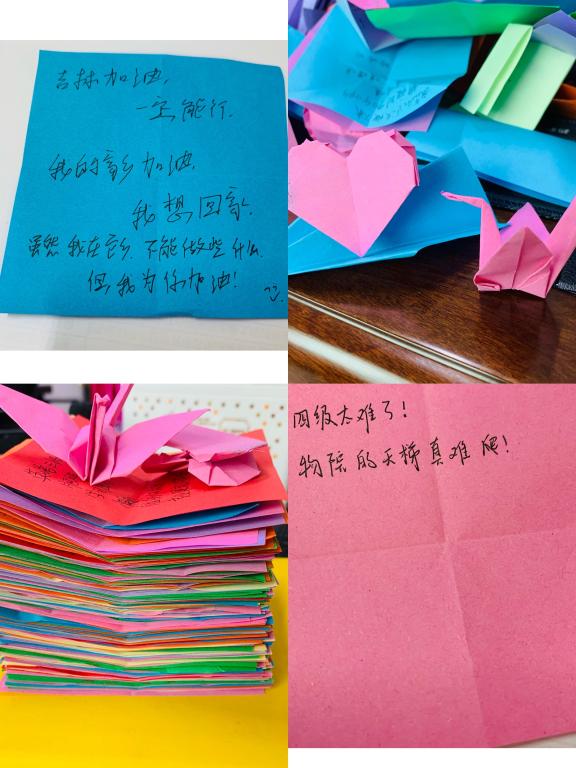 吉林加油，
一定能行.
我的家乡加油，
我想回家.
虽然我在家乡.不能做些什么.
但我为你加油!
四级太难了!
物院的天梯真难爬!